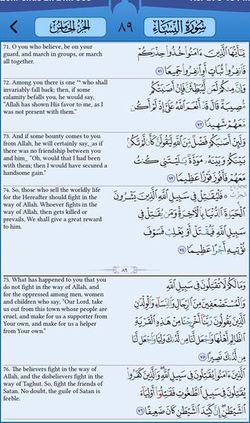 سورة النساء
٨٩
الجزء الخامس
71. O you who believe, be on your
guard, and march in groups, or march
all together.
يَٰٓأَيُّهَا ٱلَّذِينَ ءَامَنُوا۟ خُذُوا۟ حِذْرَكُمْ
فَٱنفِرُوا۟ ثُبَاتٍ أَوِ ٱنفِرُوا۟ جَمِيعًا ٧١
72. Among you there is one who shall
invariably fall back; then, if some
calamity befalls you, he would say,
"Allah has shown His favor to me, as I
was not present with them."
وَإِنَّ مِنكُمْ لَمَن لَّيُبَطِّئَنَّ فَإِنْ أَصَٰبَتْكُم
مُّصِيبَةٌ قَالَ قَدْ أَنْعَمَ ٱللَّهُ عَلَىَّ إِذْ لَمْ أَكُن
مَّعَهُمْ شَهِيدًا ٧٢
73. And if some bounty comes to you
from Allah, he will certainly_say_as if
there was no friendship between you
and him_ "Oh, would that I had been
with them; then I would have secured a
handsome gain."
وَلَئِنْ أَصَٰبَكُمْ فَضْلٌ مِّنَ ٱللَّهِ لَيَقُولَنَّ كَأَن لَّمْ تَكُنۢ
بَيْنَكُمْ وَبَيْنَهُۥ مَوَدَّةٌ يَٰلَيْتَنِى كُنتُ
مَعَهُمْ فَأَفُوزَ فَوْزًا عَظِيمًا ٧٣
74. So, those who sell the worldly life
for the Hereafter should fight in the
way of Allah. Whoever fights in the
way of Allah, then gets killed or
prevails, We shall give a great reward
to him.
فَلْيُقَٰتِلْ فِى سَبِيلِ ٱللَّهِ ٱلَّذِينَ يَشْرُونَ
ٱلْحَيَوٰةَ ٱلدُّنْيَا بِٱلْءَاخِرَةِ وَمَن يُقَٰتِلْ فِى
سَبِيلِ ٱللَّهِ فَيُقْتَلْ أَوْ يَغْلِبْ فَسَوْفَ
نُؤْتِيهِ أَجْرًا عَظِيمًا ٧٤
٨٩
75. What has happened to you that you
do not fight in the way of Allah, and
for the oppressed among men, women
and children who say, "Our Lord, take
us out from this town whose people are
cruel, and make for us a supporter from
Your own, and make for us a helper
from Your own."
وَمَا لَكُمْ لَا تُقَٰتِلُونَ فِى سَبِيلِ ٱللَّهِ
وَٱلْمُسْتَضْعَفِينَ مِنَ ٱلرِّجَالِ وَٱلنِّسَآءِ وَٱلْوِلْدَٰنِ
ٱلَّذِينَ يَقُولُونَ رَبَّنَآ أَخْرِجْنَا مِنْ هَٰذِهِ ٱلْقَرْيَةِ
ٱلظَّالِمِ أَهْلُهَا وَٱجْعَل لَّنَا مِن لَّدُنكَ وَلِيًّا وَٱجْعَل لَّنَا
مِن لَّدُنكَ نَصِيرًا ٧٥
76. The believers fight in the way of
Allah, and the disbelievers fight in the
way of Taghut. So, fight the friends of
Satan. No doubt, the guile of Satan is
feeble.
ٱلَّذِينَ ءَامَنُوا۟ يُقَٰتِلُونَ فِى سَبِيلِ ٱللَّهِ وَٱلَّذِينَ كَفَرُوا۟
يُقَٰتِلُونَ فِى سَبِيلِ ٱلطَّٰغُوتِ فَقَٰتِلُوٓا۟ أَوْلِيَآءَ
ٱلشَّيْطَٰنِ إِنَّ كَيْدَ ٱلشَّيْطَٰنِ كَانَ ضَعِيفًا ٧٦